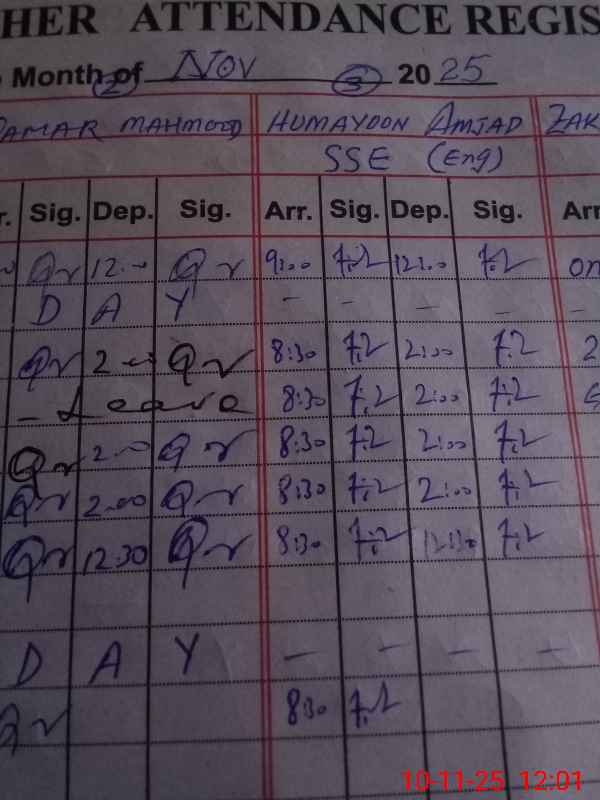 HER ATTENDANCE REGIS
Month of Nov 2025
QAMAR MAHMOOD HUMAYOON AMJAD ZAK
SSE (Eng)
r. Sig. Dep. Sig. Arr. Sig. Dep. Sig. Arr
12:00 9:00 12:00 on
D A Y - - - - -
2:00 8:30 2:00 2
- Leave 8:30 2:00
2:00 8:30 2:00
2:00 8:30 2:00
12:30 8:30 12:30
D A Y - - - -
8:30
10-11-25 12:01